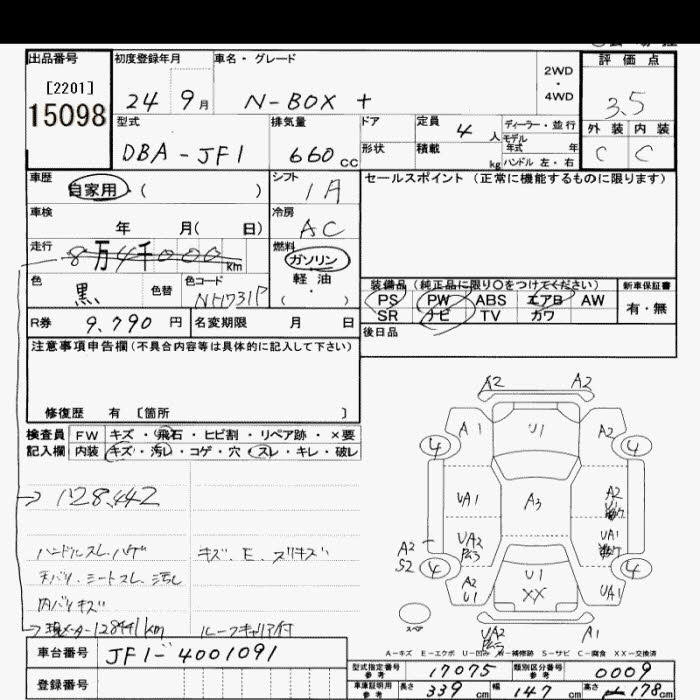 出品番号 初度登録年月 車名・グレード 評価点
[2201]
15098
24 9月 N-BOX + 2WD・4WD 3.5
型式 排気量 ドア 定員 4人 ディーラー・並行 外装 内装
DBA-JF1 660cc 形状 積載 kg モデル年式 年 ハンドル 左・右 C C
車歴 自家用・( ) シフト 1A セールスポイント(正常に機能するものに限ります)
車検 年 月( 日) 冷房 AC
走行 8万4千000km 燃料 ガソリン
軽油
( ・ )
色 黒 色替 色コード NH731P
装備品(純正品に限り〇をつけてください) 新車保証書
PS PW ABS エアB AW 有・無
SR ナビ TV カワ
R券 9,790円 名変期限 月 日 後日品
注意事項申告欄(不具合内容等は具体的に記入して下さい)
修復歴 有 〔箇所 〕
検査員 FW キズ・飛石・ヒビ割・リペア跡・×要
記入欄 内装 キズ・汚レ・コゲ・穴・スレ・キレ・破レ
→128,442
ハンドルスレ、ハゲ キズ、E、スリキズ
天バリ、シートスレ、汚レ
内バリキズ
→現メーター128441km ルーフキャリア付
A2 A2
A1 U1 A2
4 4
UA1 A3 A2
UA2 UA1
A2
S2
4 4
A2
U1 U1 UA1
XX
スペア
UA2 A1
A-キズ E-エクボ U-凹み W-補修跡 S-サビ C-腐食 XX-交換済
車台番号 JF1-4001091
型式指定番号 参考 17075 類別区分番号 参考 0009
登録番号 車庫証明用 参考 長さ 339cm 幅 147cm 高さ 178cm